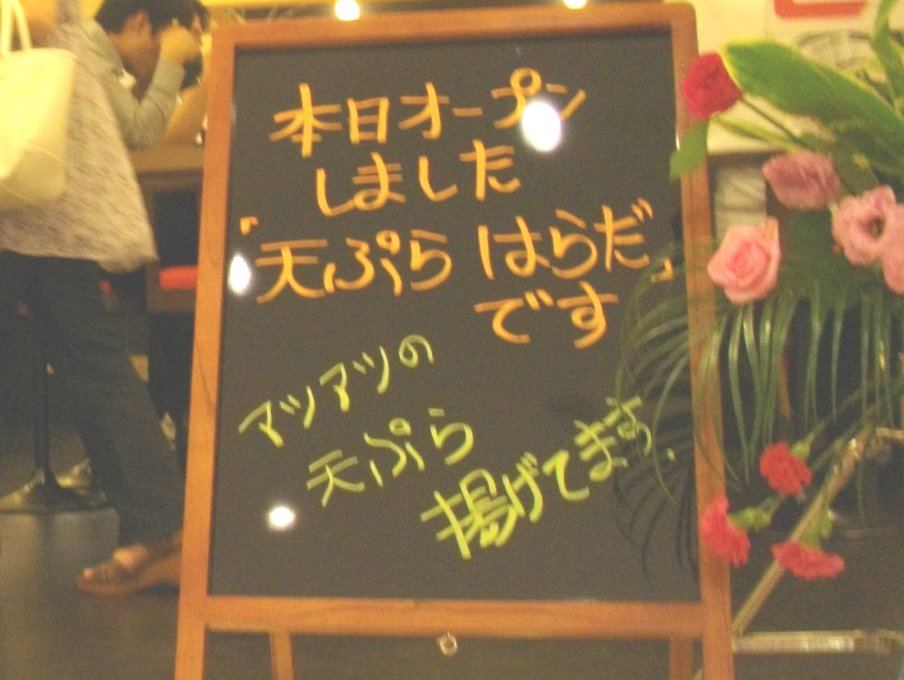 本日オープン
しました
「天ぷら はらだ」
です
アツアツの
天ぷら
揚げてます。